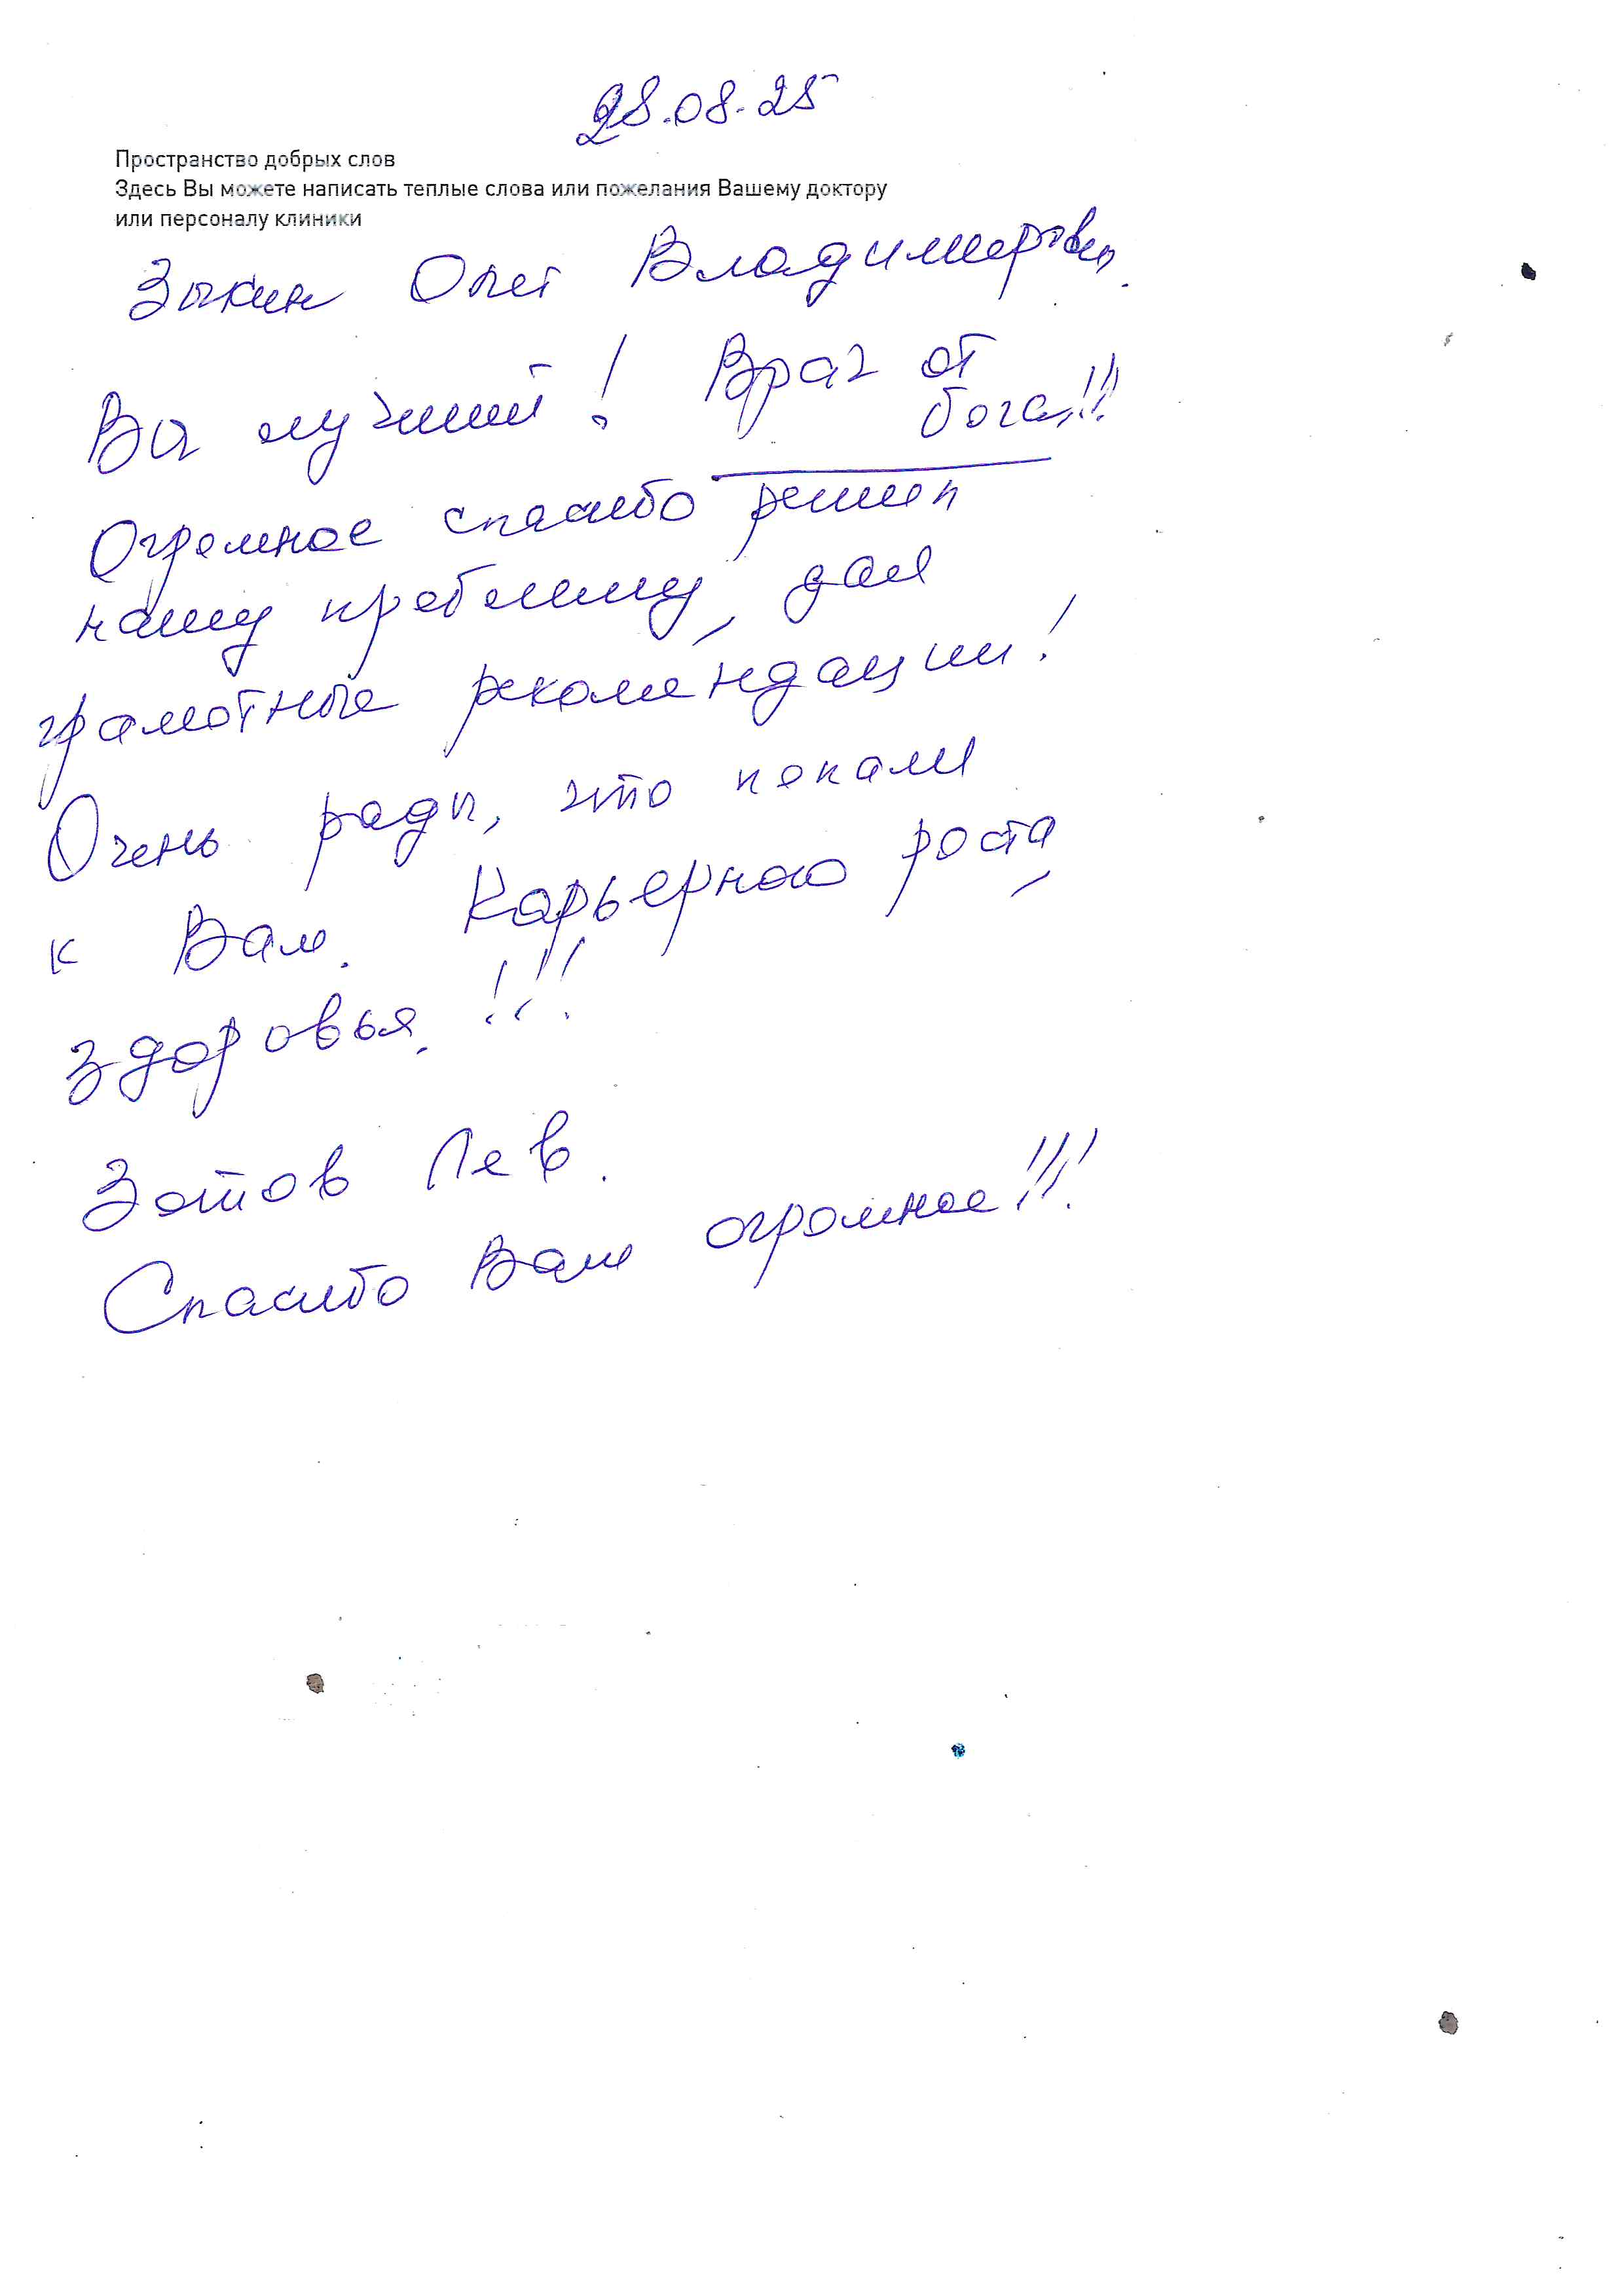 28.08.25
Пространство добрых слов
Здесь Вы можете написать теплые слова или пожелания Вашему доктору
или персоналу клиники
Зыкин Олег Владимирович.
Вы лучший! Врач от
бога!!!
Огромное спасибо решил
нашу проблему, дал
грамотные рекомендации!
Очень рады, что попали
к Вам. Карьерного роста,
здоровья!!!
Зотов Лев.
Спасибо Вам огромное!!!